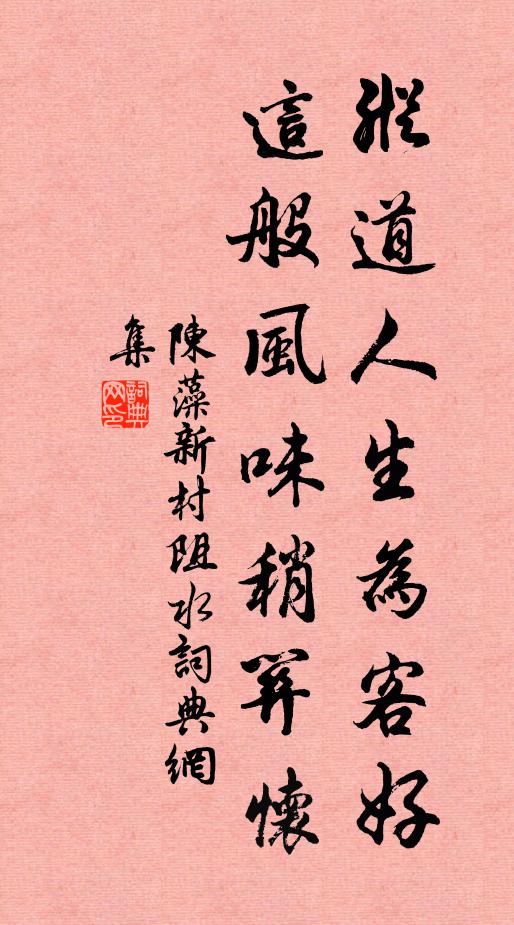 縱道人生為客好
這般風味稍開懷
陳藻新村阻水詞典網
集
詞典
网印